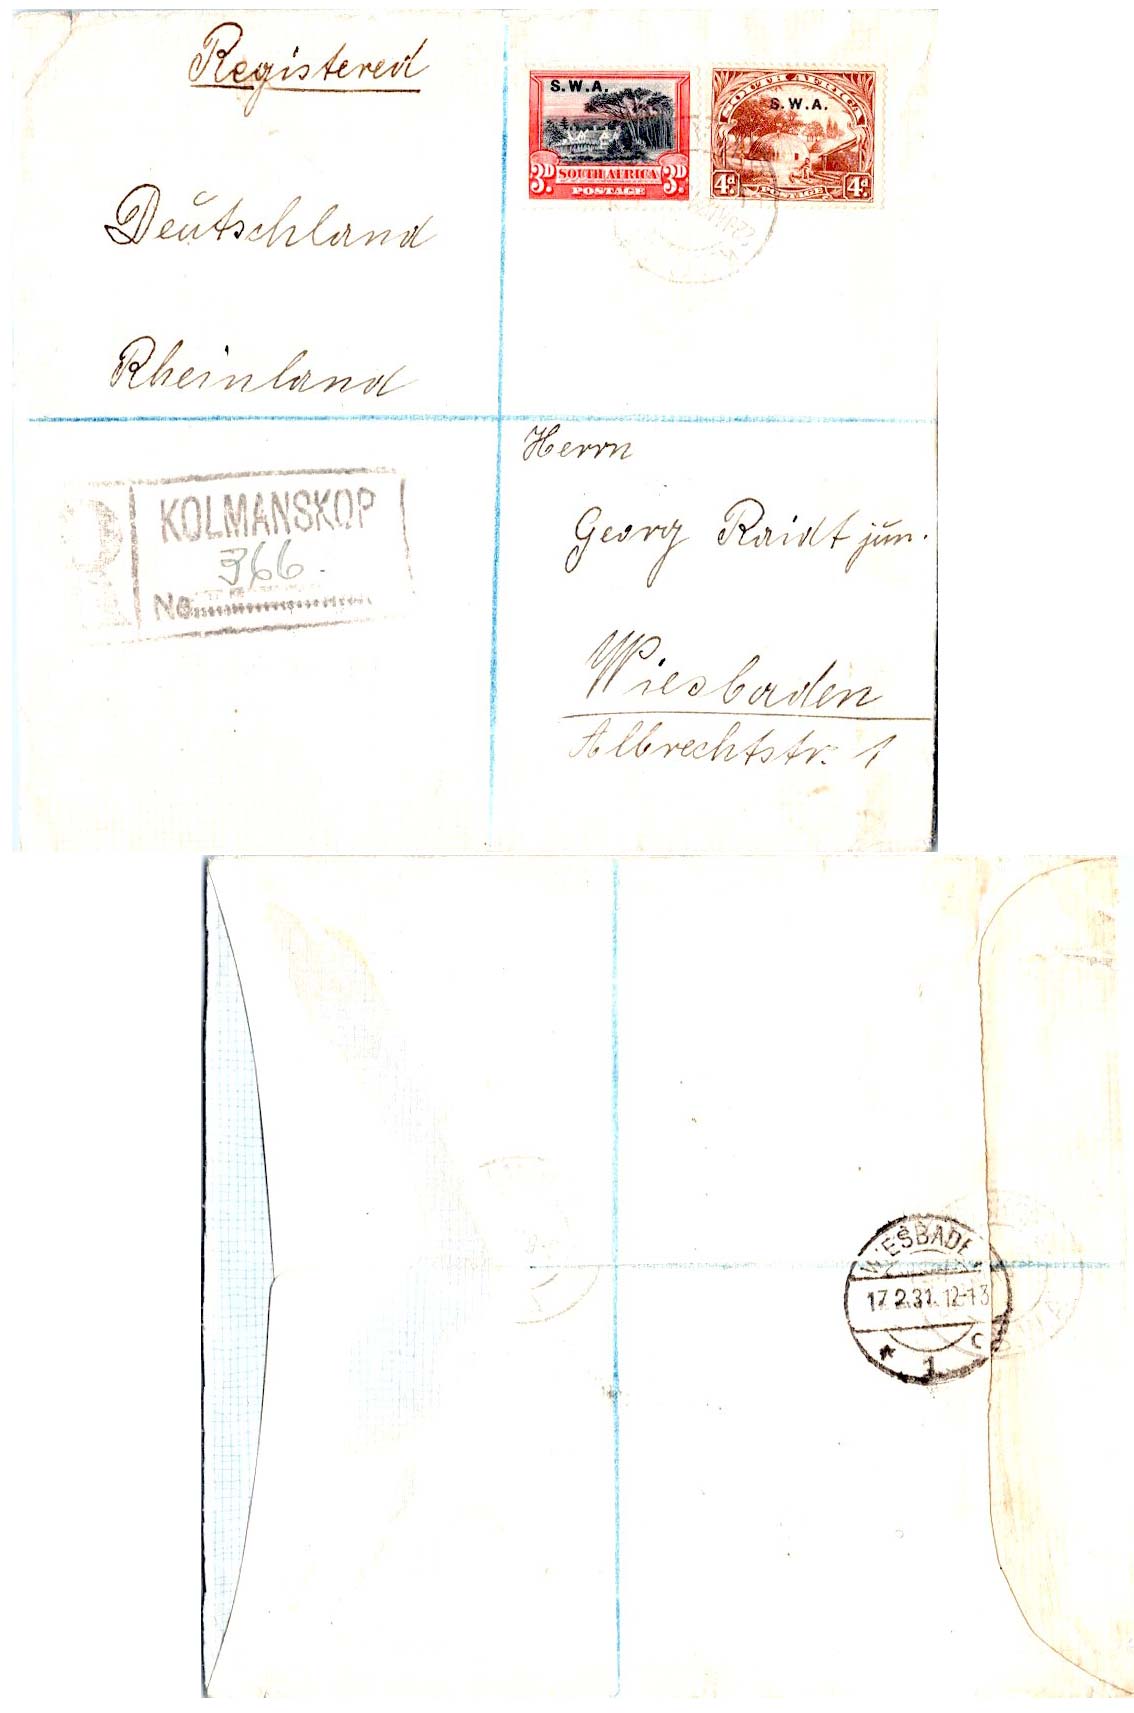 Registered
S.W.A.
SOUTH AFRICA
3D. 3D.
POSTAGE
SOUTH AFRICA
S.W.A.
4d. 4d.
POSTAGE
Deutschland
Rheinland
KOLMANSKOP
366.
No
Herrn
Georg Raidt jun.
Wiesbaden
Albrechtstr. 1
WIESBADEN
17.2.31. 12-13
* 1 c